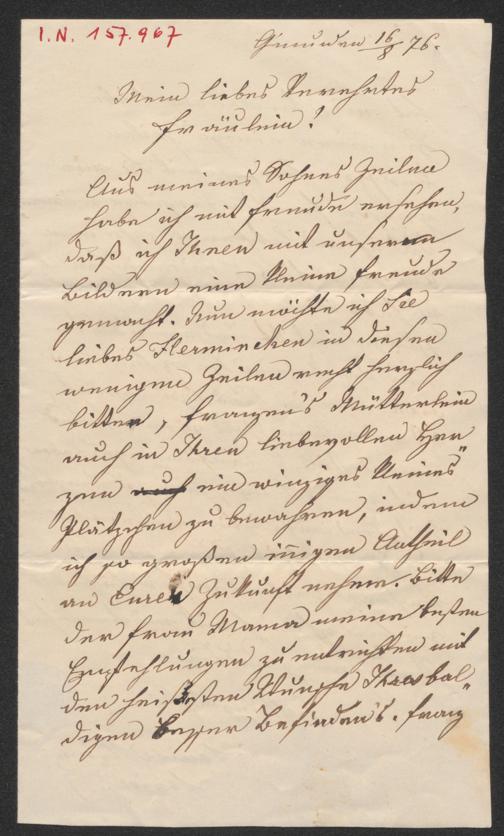 I.N. 157.967
Gmunden 16/8 76.
Mein liebes Verehrtes
Fräulein!
Aus meines Sohnes Zeilen
habe ich mit Freude ersehen,
daß ich Ihnen mit unseren
Bildern eine kleine Freude
gemacht. Nun möchte ich Sie
liebes Herminchen in diesen
wenigen Zeilen recht herzlich
bitten, Franzens Mütterlein
auch in Ihren liebevollen Her
zen auch ein winziges kleines
Plätzchen zu bewahren, indem
ich so großen innigen Antheil
an Eurer Zukunft nehme. Bitte
der Frau Mama meine besten
Empfehlungen zu entrichten mit
den heißesten Wunsche Ihres bal„
digen besser Befinden's. Franz